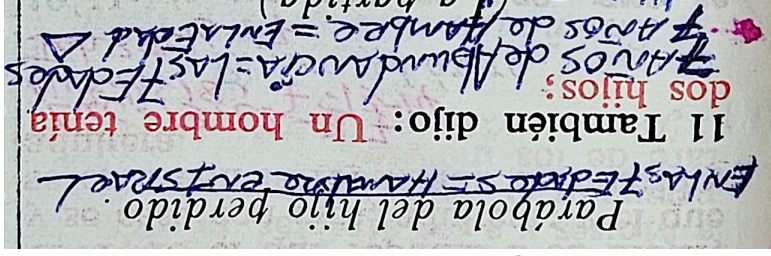 Parábola del hijo perdido.
EN LAS 7 Edades = Hambre EN ISRAEL
11 También dijo: Un hombre tenía
dos hijos;
7 AÑOS de Abundancia = LAS 7 Edades
7 AÑOS de Hambre. = EN LA Edad Δ